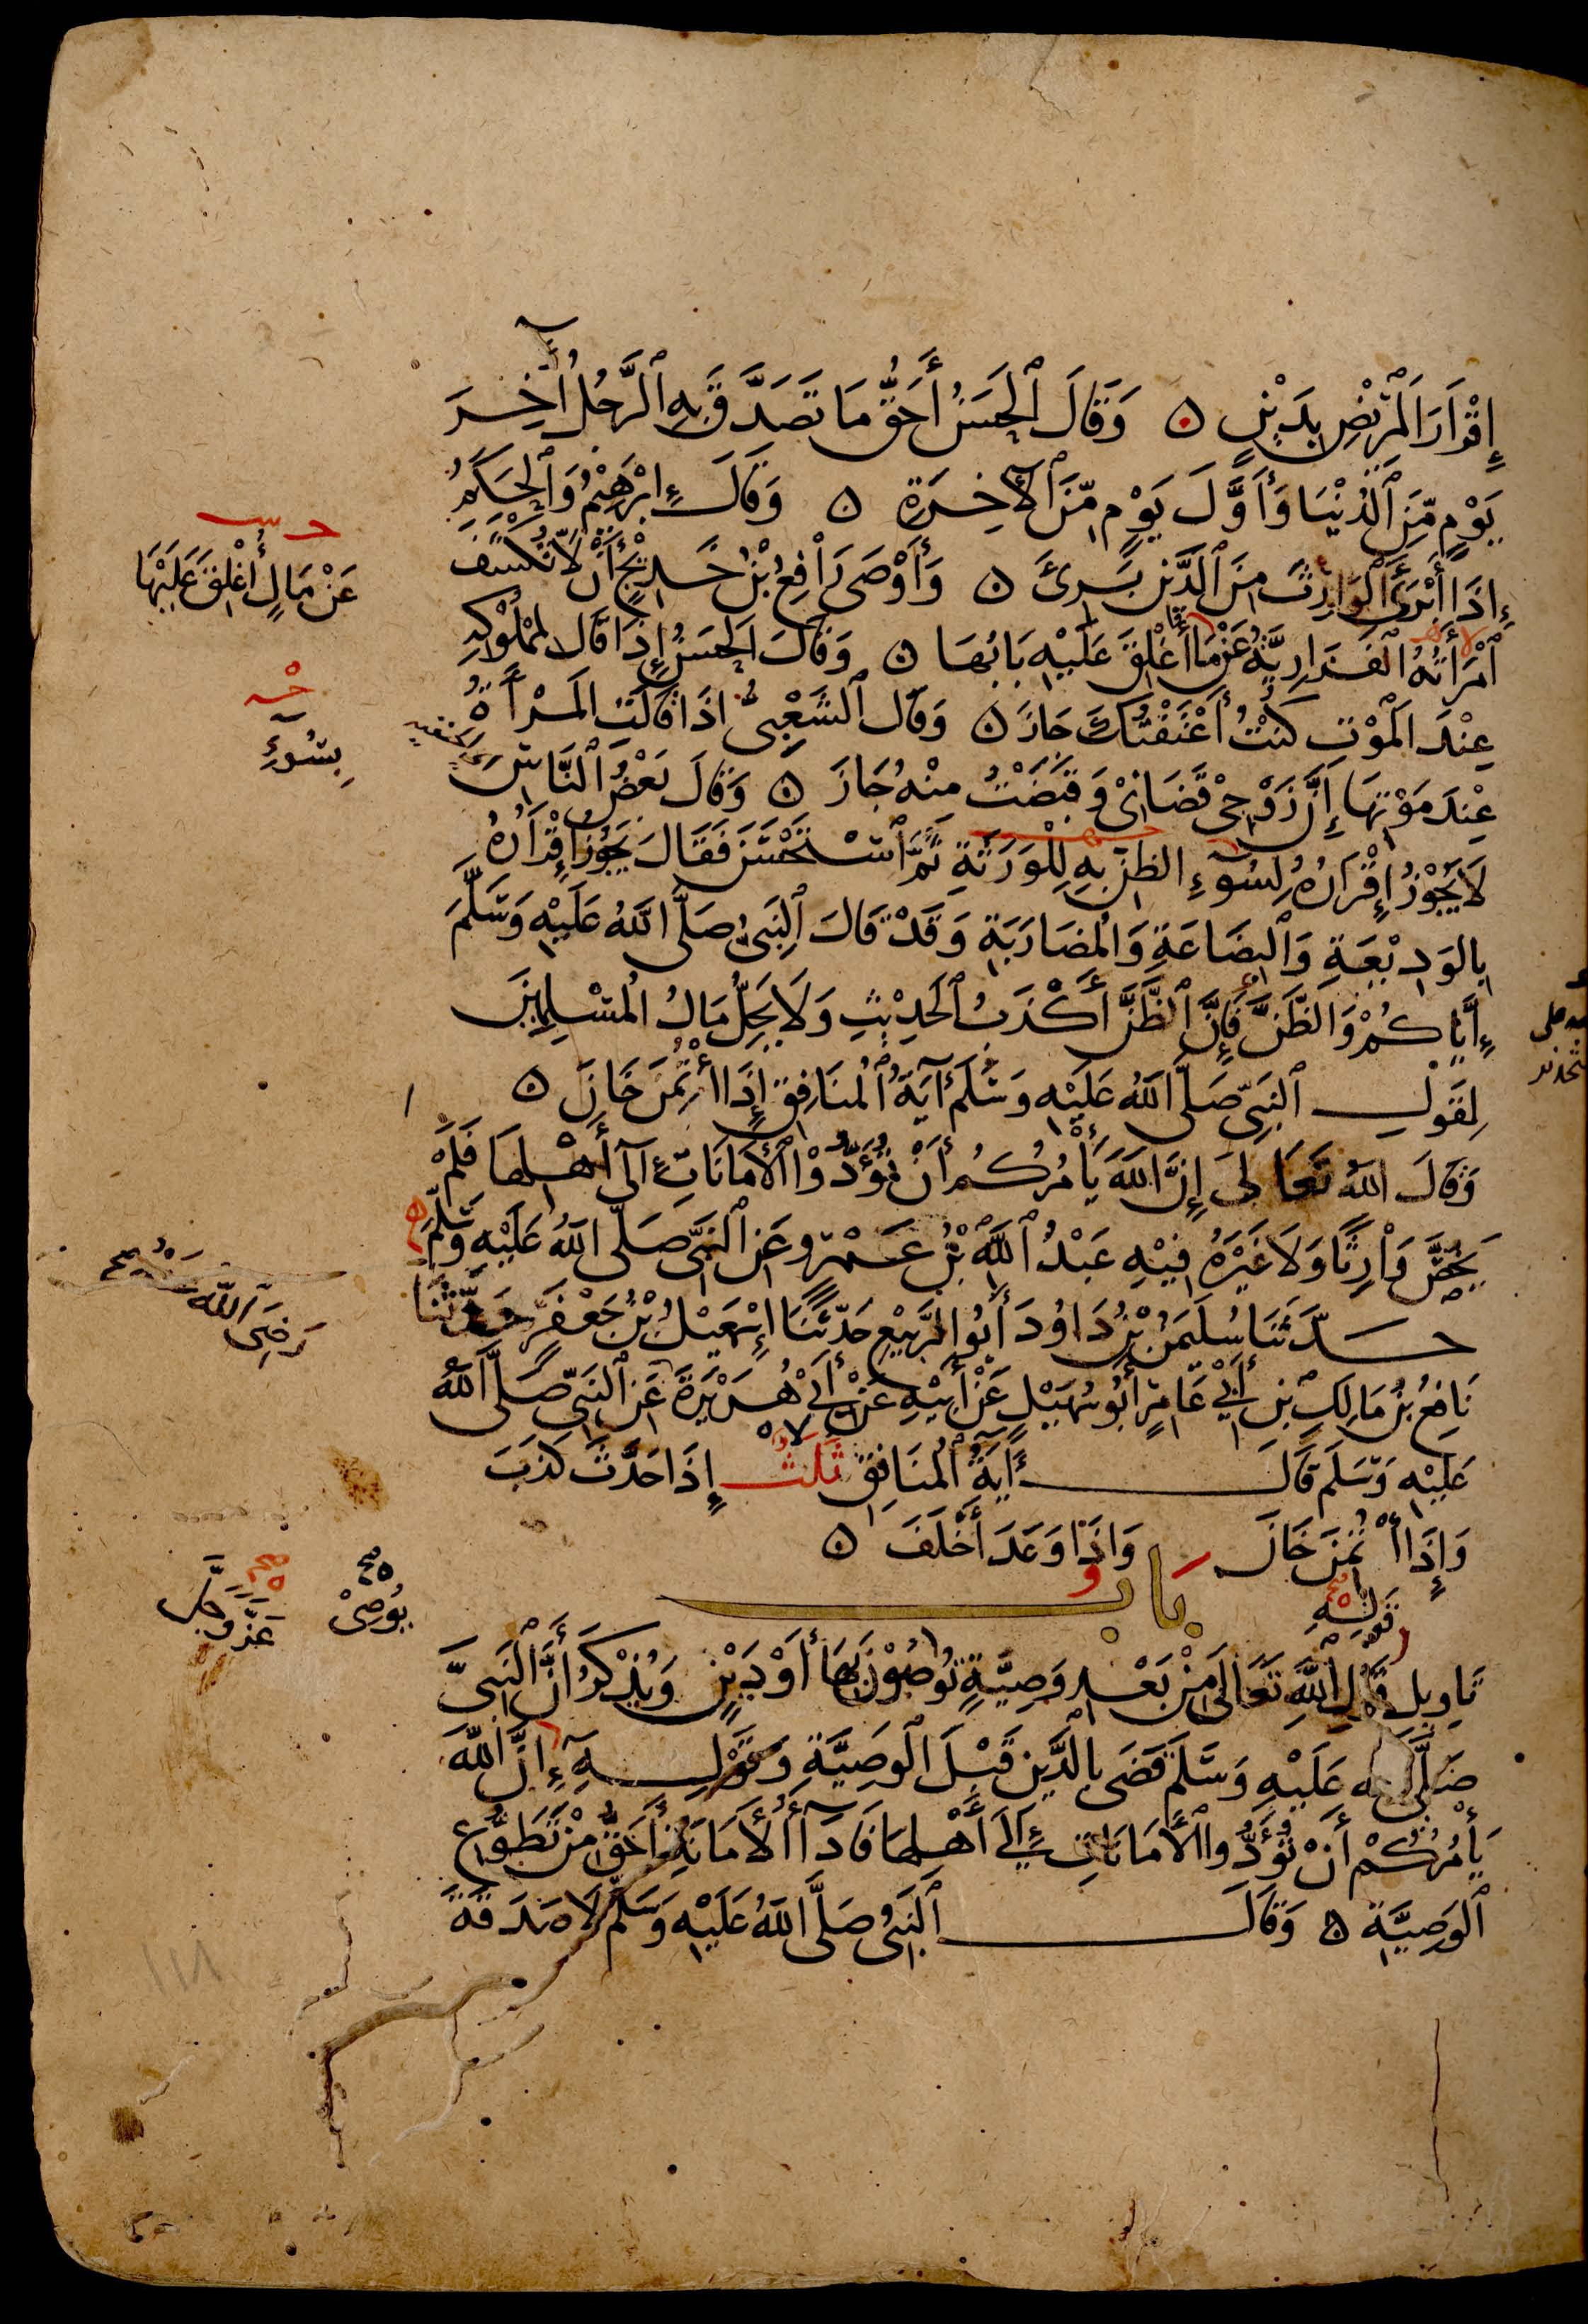 إِقْرَارَ الْمَرِيْضِ بِدَيْنٍ ۞ وَقَالَ الْحَسَنُ أَحَقُّ مَا تَصَدَّقَ بِهِ الرَّجُلُ آخِرَ
يَوْمٍ مِّنَ الدُّنْيَا وَأَوَّلَ يَوْمٍ مِّنَ الْآخِرَةِ ۞ وَقَالَ إِبْرَهِيْمُ وَالْحَكَمُ
إِذَا أَبْرَأَ الْوَارِثَ مِنَ الدَّيْنِ بَرِئَ ۞ وَأَوْصَى رَافِعُ بْنُ خَدِيْجٍ أَنْ لَّا تُكْشَفَ
امْرَأَتُهُ الْفَزَارِيَّةُ عَمَّا أُغْلِقَ عَلَيْهِ بَابُهَا ۞ وَقَالَ الْحَسَنُ إِذَا قَالَ لِمَمْلُوْكِهِ
عِنْدَ الْمَوْتِ كُنْتُ أَعْتَقْتُكَ جَازَ ۞ وَقَالَ الشَّعْبِيُّ إِذَا قَالَتِ الْمَرْأَةُ
عِنْدَ مَوْتِهَا إِنَّ زَوْجِيْ قَضَانِيْ وَقَبَضْتُ مِنْهُ جَازَ ۞ وَقَالَ بَعْضُ النَّاسِ
لَا يَجُوْزُ إِقْرَارُهُ لِسُوْءِ الظَّنِّ بِهِ لِلْوَرَثَةِ ثُمَّ اسْتَحْسَنَ فَقَالَ يَجُوْزُ إِقْرَارُهُ
بِالْوَدِيْعَةِ وَالْبِضَاعَةِ وَالْمُضَارَبَةِ وَقَدْ قَالَ النَّبِيُّ صَلَّى اللهُ عَلَيْهِ وَسَلَّمَ
إِيَّاكُمْ وَالظَّنَّ فَإِنَّ الظَّنَّ أَكْذَبُ الْحَدِيْثِ وَلَا يَحِلُّ مَالُ الْمُسْلِمِيْنَ
لِقَوْلِ النَّبِيِّ صَلَّى اللهُ عَلَيْهِ وَسَلَّمَ آيَةُ الْمُنَافِقِ إِذَا اؤْتُمِنَ خَانَ ۞
وَقَالَ اللهُ تَعَالَى إِنَّ اللهَ يَأْمُرُكُمْ أَنْ تُؤَدُّوْا الْأَمَانَاتِ إِلَى أَهْلِهَا فَلَمْ
يَخُصَّ وَارِثًا وَلَا غَيْرَهُ فِيْهِ عَبْدُ اللهِ بْنُ عَمْرٍو عَنِ النَّبِيِّ صَلَّى اللهُ عَلَيْهِ وَسَلَّمَ
حَدَّثَنَا سُلَيْمَنُ بْنُ دَاوُدَ أَبُو الرَّبِيْعِ حَدَّثَنَا إِسْمَعِيْلُ بْنُ جَعْفَرٍ حَدَّثَنَا
نَافِعُ بْنُ مَالِكِ بْنِ أَبِيْ عَامِرٍ أَبُو سُهَيْلٍ عَنْ أَبِيْهِ عَنْ أَبِيْ هُرَيْرَةَ عَنِ النَّبِيِّ صَلَّى اللهُ
عَلَيْهِ وَسَلَّمَ قَالَ آيَةُ الْمُنَافِقِ ثَلَثٌ إِذَا حَدَّثَ كَذَبَ
وَإِذَا اؤْتُمِنَ خَانَ وَإِذَا وَعَدَ أَخْلَفَ ۞
بَاب
قَوْلِهِ
تَاوِيل قَوْلِ اللهِ تَعَالَى مِنْ بَعْدِ وَصِيَّةٍ تُوْصُوْنَ بِهَا أَوْ دَيْنٍ وَيُذْكَرُ أَنَّ النَّبِيَّ
صَلَّى الله عَلَيْهِ وَسَلَّمَ قَضَى بِالدَّيْنِ قَبْلَ الْوَصِيَّةِ وَقَوْلِهِ إِنَّ اللهَ
يَأْمُرُكُمْ أَنْ تُؤَدُّوا الْأَمَانَاتِ إِلَى أَهْلِهَا فَأَدَاءُ الْأَمَانَةِ أَحَقُّ مِنْ تَطَوُّعِ
الْوَصِيَّةِ ۞ وَقَالَ النَّبِيُّ صَلَّى اللهُ عَلَيْهِ وَسَلَّمَ لَا صَدَقَةَ
عَنْ مَالٍ أُغْلِقَ عَلَيْهَا
بِسُوْءِ
رَضِيَ اللهُ عَنْهُ
يُوْصِيْ
عَزَّ وَجَلَّ
١١٨